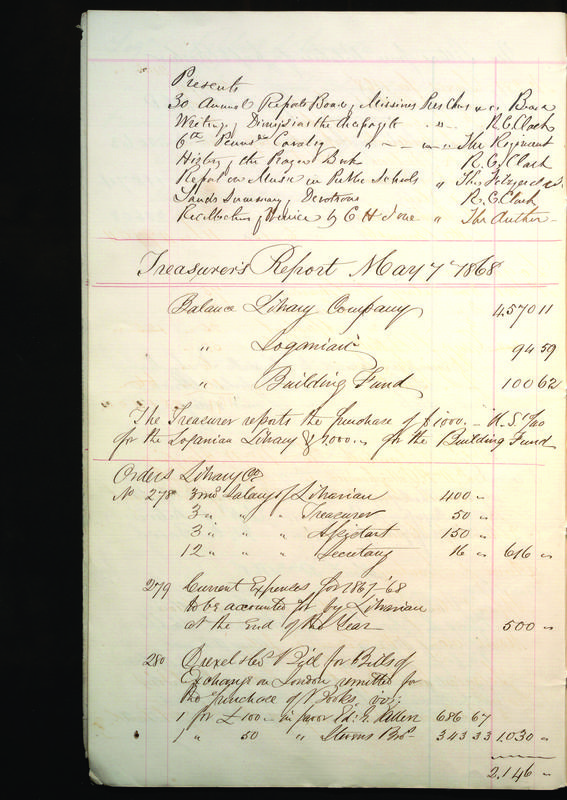 Presents
30 Annual Reports Board of Missions Pres Chur " " Board
Writings, Dionysius the " " R. C. Clark
6th Penna Cavalry " " " The Regiment
History of the Prayer Book R. C. Clark
Report on Music in Public Schools " Thos Fitzgerald
Sands Devotions R. C. Clark
Recollections of Venice by C H Jone " The Author
Treasurer's Report May 7" 1868
Balance Library Company 4.570 11
" Loganian 94 59
" Building Fund 100 62
The Treasurer reports the purchase of $1000.- U.S.
for the Loganian Library & for the Building Fund
Orders Library Co
No 278 3 mos Salary of Librarian 400 "
3 " " " Treasurer 50 "
3 " " " Assistant 150 "
12 " " " Secretary 16 " 616 "
279 Current Expences for 1867-'68
to be accounted for by Librarian
at the End of the Year 500 "
280 Drexel & Co's Bill for Bills of
Exchange on London remitted for
the purchase of Books, viz;
1 for £100 - in favor Ed: G. Allen 686 67
1 " 50 " Stevens Bro 343 33 1.030 "
2.146 "